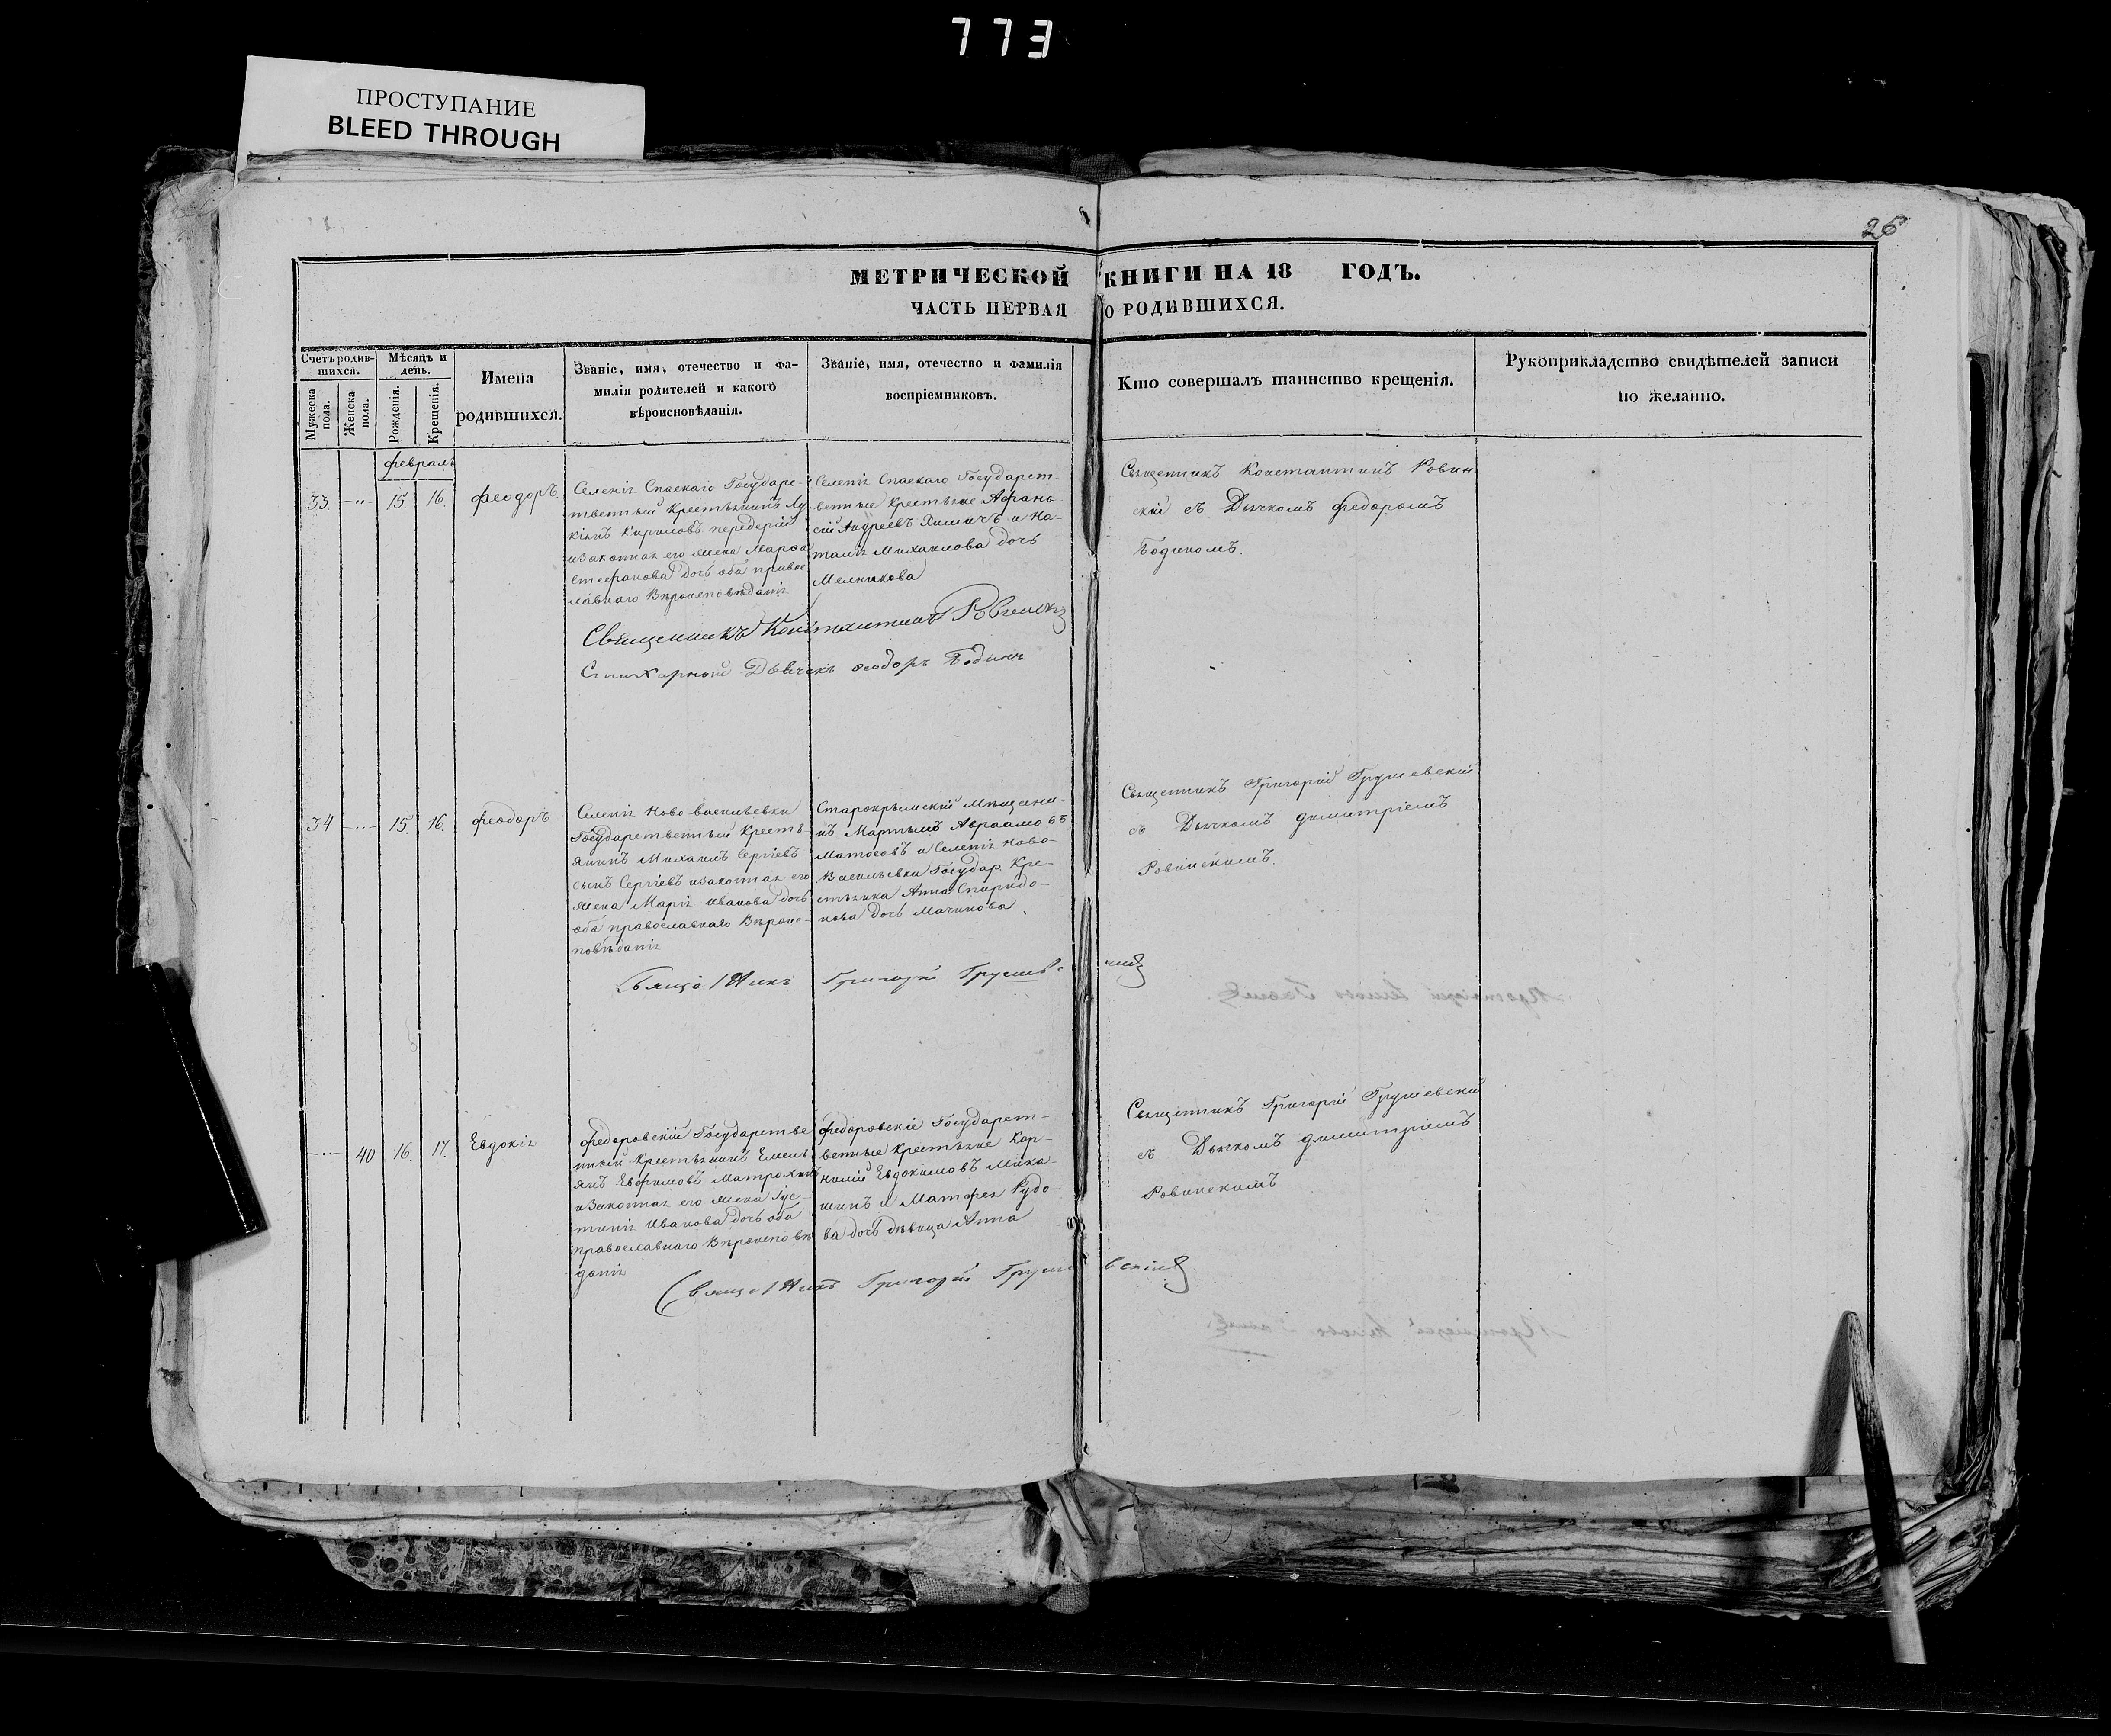 773
ПРОСТУПАНИЕ
BLEED THROUGH
26
МЕТРИЧЕСКОЙ КНИГИ НА 18 ГОДЪ.
ЧАСТЬ ПЕРВАЯ О РОДИВШИХСЯ.
Счетъ родив-
шихся.
Мужеска
пола.
Женска
пола.
Мѣсяцъ и
день.
Рожденія.
Крещенія.
Имена
родившихся.
Званіе, имя, отечество и фа-
милія родителей и какого
вѣроисповѣданія.
Званіе, имя, отечество и фамилія
воспріемниковъ.
Кто совершалъ таинство крещенія.
Рукоприкладство свидѣтелей записи
по желанію.
февраль
33
15.
16.
феодоръ
Селенія Спаскаго Государс-
твенный крестьянинъ Лу
кіянъ Кириловъ передерій
и законная его жена Марѳа
Стефанова дочь оба право
славнаго Вѣроисповѣданія
Селенія Спаскаго Государст-
венные крестьяне Афана
сій Андреевъ Химичъ и На-
талія Михаилова дочь
Мелникова
Священникъ Константинъ Ровин
скій съ Дьячкомъ федоромъ
Бодиномъ.
Священникъ Константинъ
Стихарный Дьячекъ Ѳеодоръ Бодинъ
34
15.
16.
феодоръ
Селенія Ново васильевки
Государственный Кресть
янинъ Михаилъ Сергіевъ
сынъ Сергіевъ и законная его
жена Марія Иванова дочь
оба православнаго Вѣроис-
повѣданія
Старокрымскій Мѣщани-
нъ Мартынъ Авраамовъ
Матосовъ и Селенія Ново-
Васильевки Государ. Кре-
стьянка Анна Спиридо-
нова дочь Мачинова
Священникъ Григорій Грушевскій
съ Дьячкомъ Димитріемъ
Ровинскимъ.
Священникъ Григорій Грушевскій
40
16.
17.
Евдокія
федоровскій Государстве
нный крестьянинъ Емель
янъ Евфимовъ Матрохинъ
и Законная его жена Іус-
тинія Иванова дочь оба
православнаго Вѣроисповѣ
данія
федоровскіе Государст-
венные крестьяне Кор-
нилій Евдокимовъ Мика-
шинъ и Матфея Рудо-
ва дочь дѣвица Анна
Священникъ Григорій Грушевскій
съ Дьячкомъ Димитріемъ
Ровинскимъ
Священникъ Григорій Грушевскій